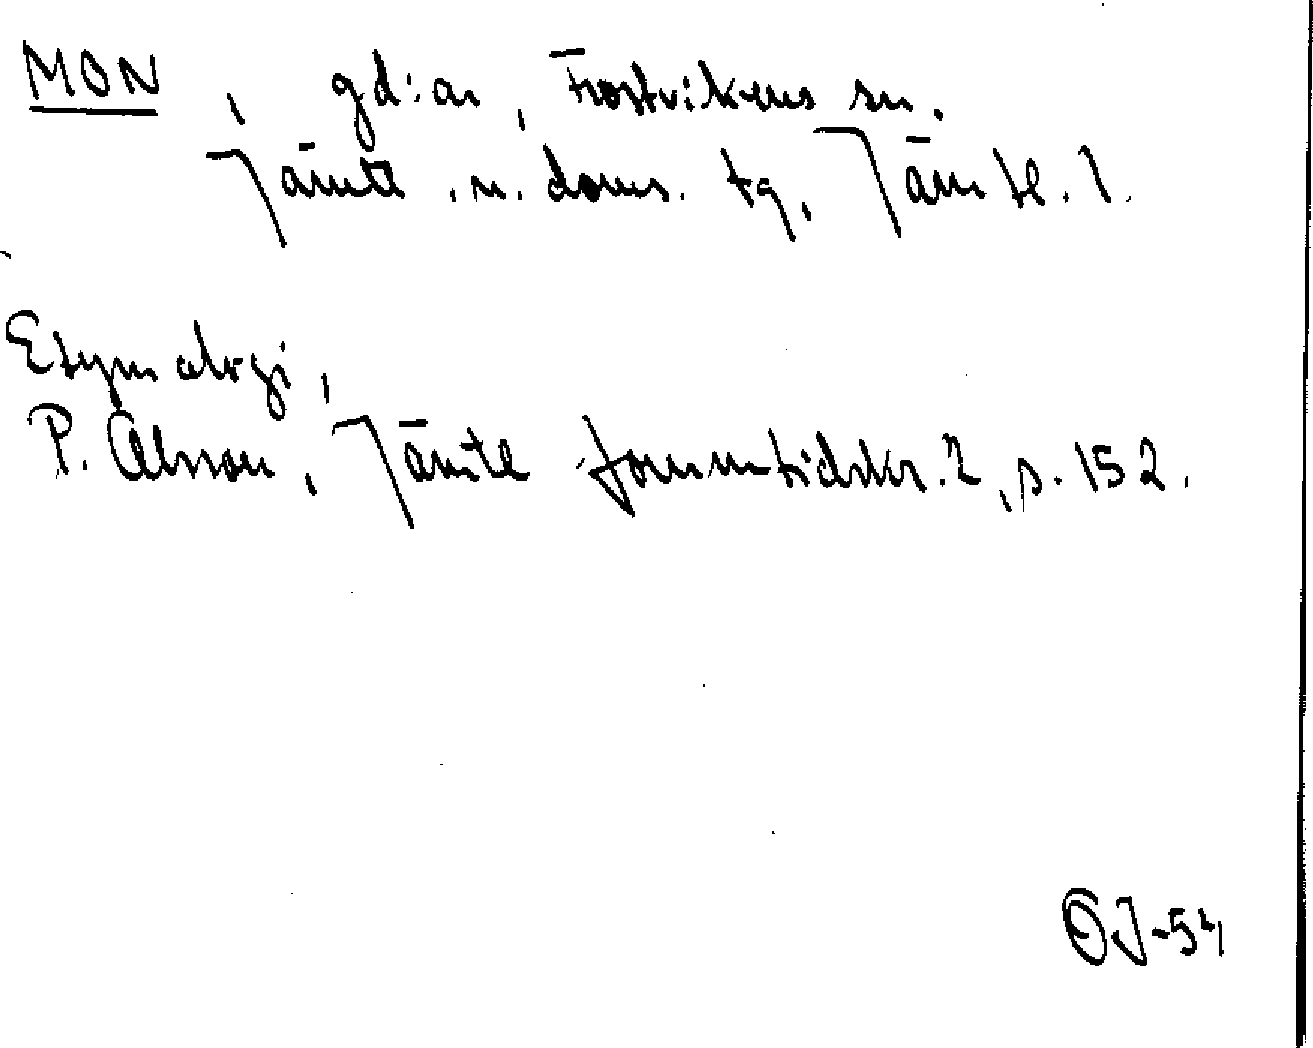 MON, gd:ar, Frostvikens sn.
Jämtl. n. doms. tg, Jämtl. l.
Etymologi,
P. Olsson, Jämtl fornmtidskr. 2, s. 152.
OJ-54